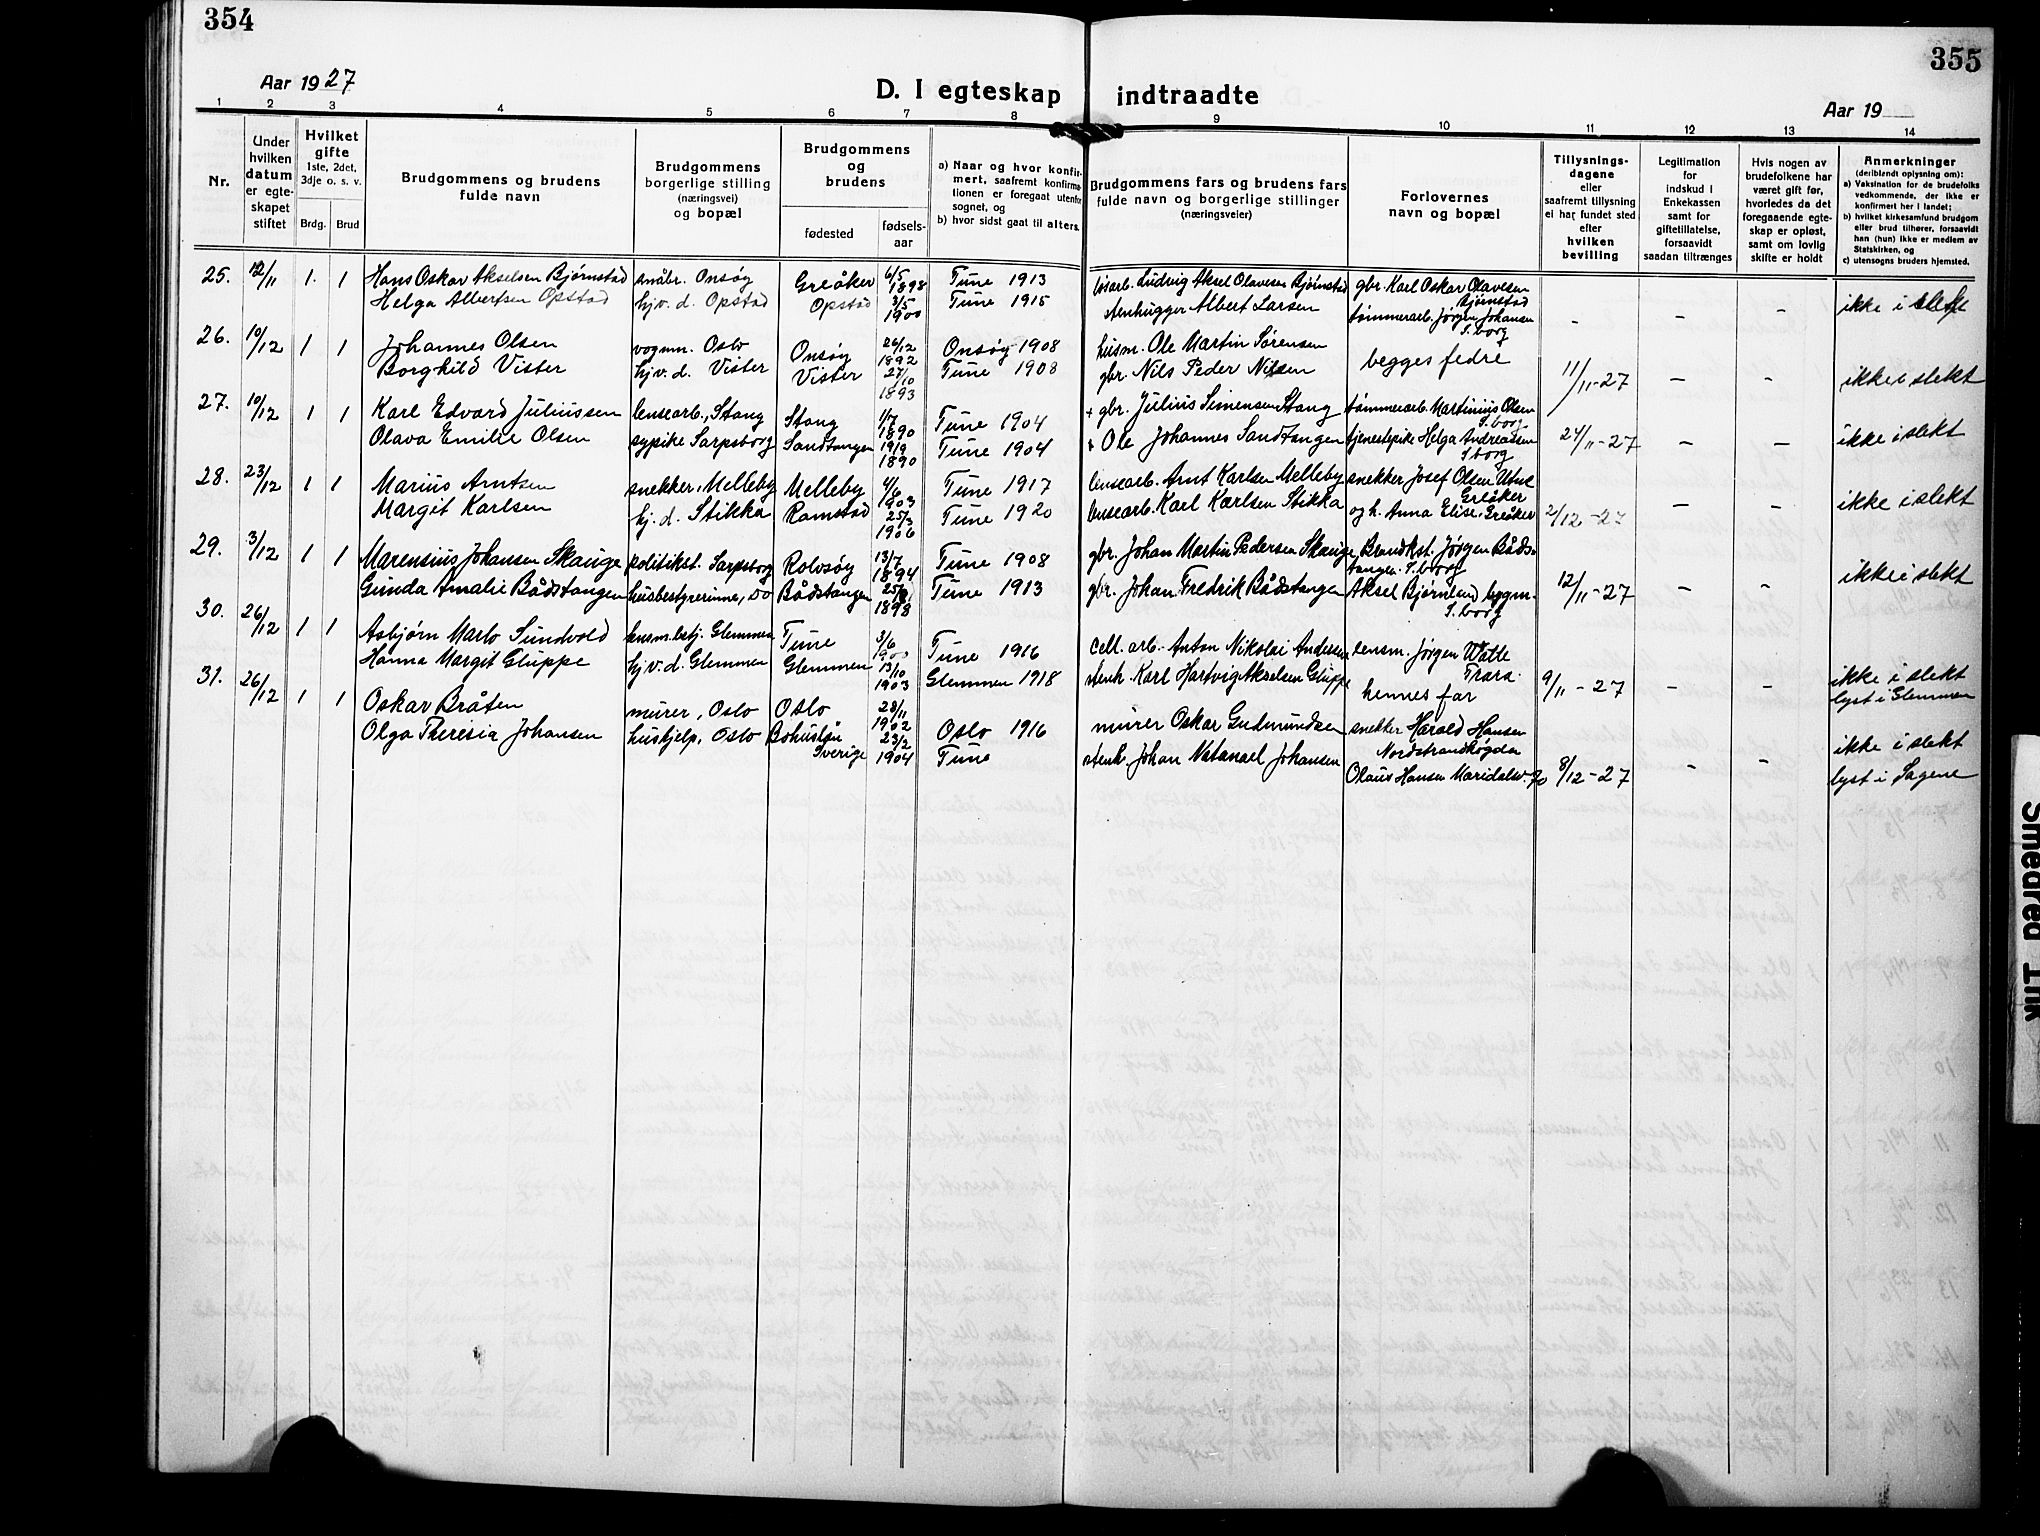 354
355
Aar 1927
D. I egteskap indtraadte
Aar 19
1 2 3 4 5 6 7 8 9 10 11 12 13 14
Nr.
Under hvilken datum er egteskapet stiftet
Hvilket gifte 1ste, 2det, 3dje o. s. v.
Brdg. Brud
Brudgommens og brudens fulde navn
Brudgommens borgerlige stilling (næringsvei) og bopæl
Brudgommens og brudens
fødested
fødselsaar
a) Naar og hvor konfirmert, saafremt konfirmationen er foregaat utenfor sognet, og
b) hvor sidst gaat til alters.
Brudgommens fars og brudens fars fulde navn og borgerlige stillinger (næringsveier)
Forlovernes navn og bopæl
Tillysningsdagene eller saafremt tillysning ei har fundet sted efter hvilken bevilling
Legitimation for indskud i Enkekassen samt for giftetillatelse, forsaavidt saadan tiltrænges
Hvis nogen av brudefolkene har været gift før, hvorledes da det foregaaende egteskap er opløst, samt om lovlig skifte er holdt
Anmerkninger (deriblandt oplysning om):
a) Vaksination for de brudefolks vedkommende, der ikke er konfirmert her i landet;
b) hvilket kirkesamfund brudgom eller brud tilhører, forsaavidt han (hun) ikke er medlem av Statskirken, og
c) utensogns bruders hjemsted.
25. 12/11 1. 1 Hans Oskar Akselsen Bjørnstad småbr. Onsøy Greåker 6/5 1898 Tune 1913 Ludvig Aksel Olavesen Bjørnstad gbr. Karl Oskar Olavesen Bjørnstad
Helga Albertsen Opstad hjv. d. Opstad Opstad 3/5 1900 Tune 1915 stenhugger Albert Larsen tømmerarb. Jørgen Johansen S.borg - - - ikke i slekt
26. 10/12 1 1 Johannes Olsen vognm. Oslo Onsøy 26/12 1892 Onsøy 1908 husm. Ole Martin Sørensen begges fedre
Borghild Vister hjv. d. Vister Vister 27/10 1893 Tune 1908 gbr. Nils Peder Nilsen 11/11-27 - - ikke i slekt
27. 10/12 1 1 Karl Edvard Juliussen lensearb., Stang Stang 1/7 1890 Tune 1904 + gbr. Julius Simensen Stang tømmerarb. Martinius Olsen S.borg
Olava Emilie Olsen sypike Sarpsborg Sandtangen 19/9 1890 Tune 1904 + Ole Johannes Sandtangen tjenestepike Helga Andreassen S.borg 24/11-27 - - ikke i slekt
28. 23/12 1 1 Marius Arntsen snekker, Melleby Melleby 4/6 1903 Tune 1917 lensearb. Arnt Karlsen Melleby snekker Josef Olsen Utne Greåker
Margit Karlsen hj. d. Stikka Ramstad 25/3 1906 Tune 1920 lensearb. Karl Karlsen Stikka og h. Anna Elise, Greåker 2/12-27 - - ikke i slekt
29. 3/12 1 1 Marensius Johansen Skauge politikst. Sarpsborg Rolvsøy 13/7 1894 Tune 1908 gbr. Johan Martin Pedersen Skauge Brandkst. Jørgen Bådstangen. S.borg
Gunda Amalie Bådstangen husbestyrerinne, do Bådstangen 1898 Tune 1913 gbr. Johan Fredrik Bådstangen Aksel Bjørnland bygm. S.borg 12/11-27 - - ikke i slekt
30. 26/12 1 1 Asbjørn Marlo Sundvold lensm.betj. Glemmen Tune 3/6 Tune 1916 cell. arb. Anton Nikolai Andersen lensm. Jørgen Watte Trara
Hanna Margit Gluppe hjv. d. Glemmen Glemmen 13/10 1903 Glemmen 1918 stenh. Karl Hartvig Akselsen Gluppe hennes far 9/11-27 - - ikke i slekt lyst i Glemmen
31. 26/12 1 1 Oskar Bråten murer, Oslo Oslo 28/11 1902 Oslo 1916 murer Oskar Gudmundsen snekker Harald Hansen Nordstrandhøgda
Olga Theresia Johansen hushjelp, Oslo Bohuslän Sverige 23/2 1904 Tune stenh. Johan Natanael Johansen Olaus Hansen Maridalsv. 70 8/12-27 - - ikke i slekt lyst i Sagene
Smeared Ink